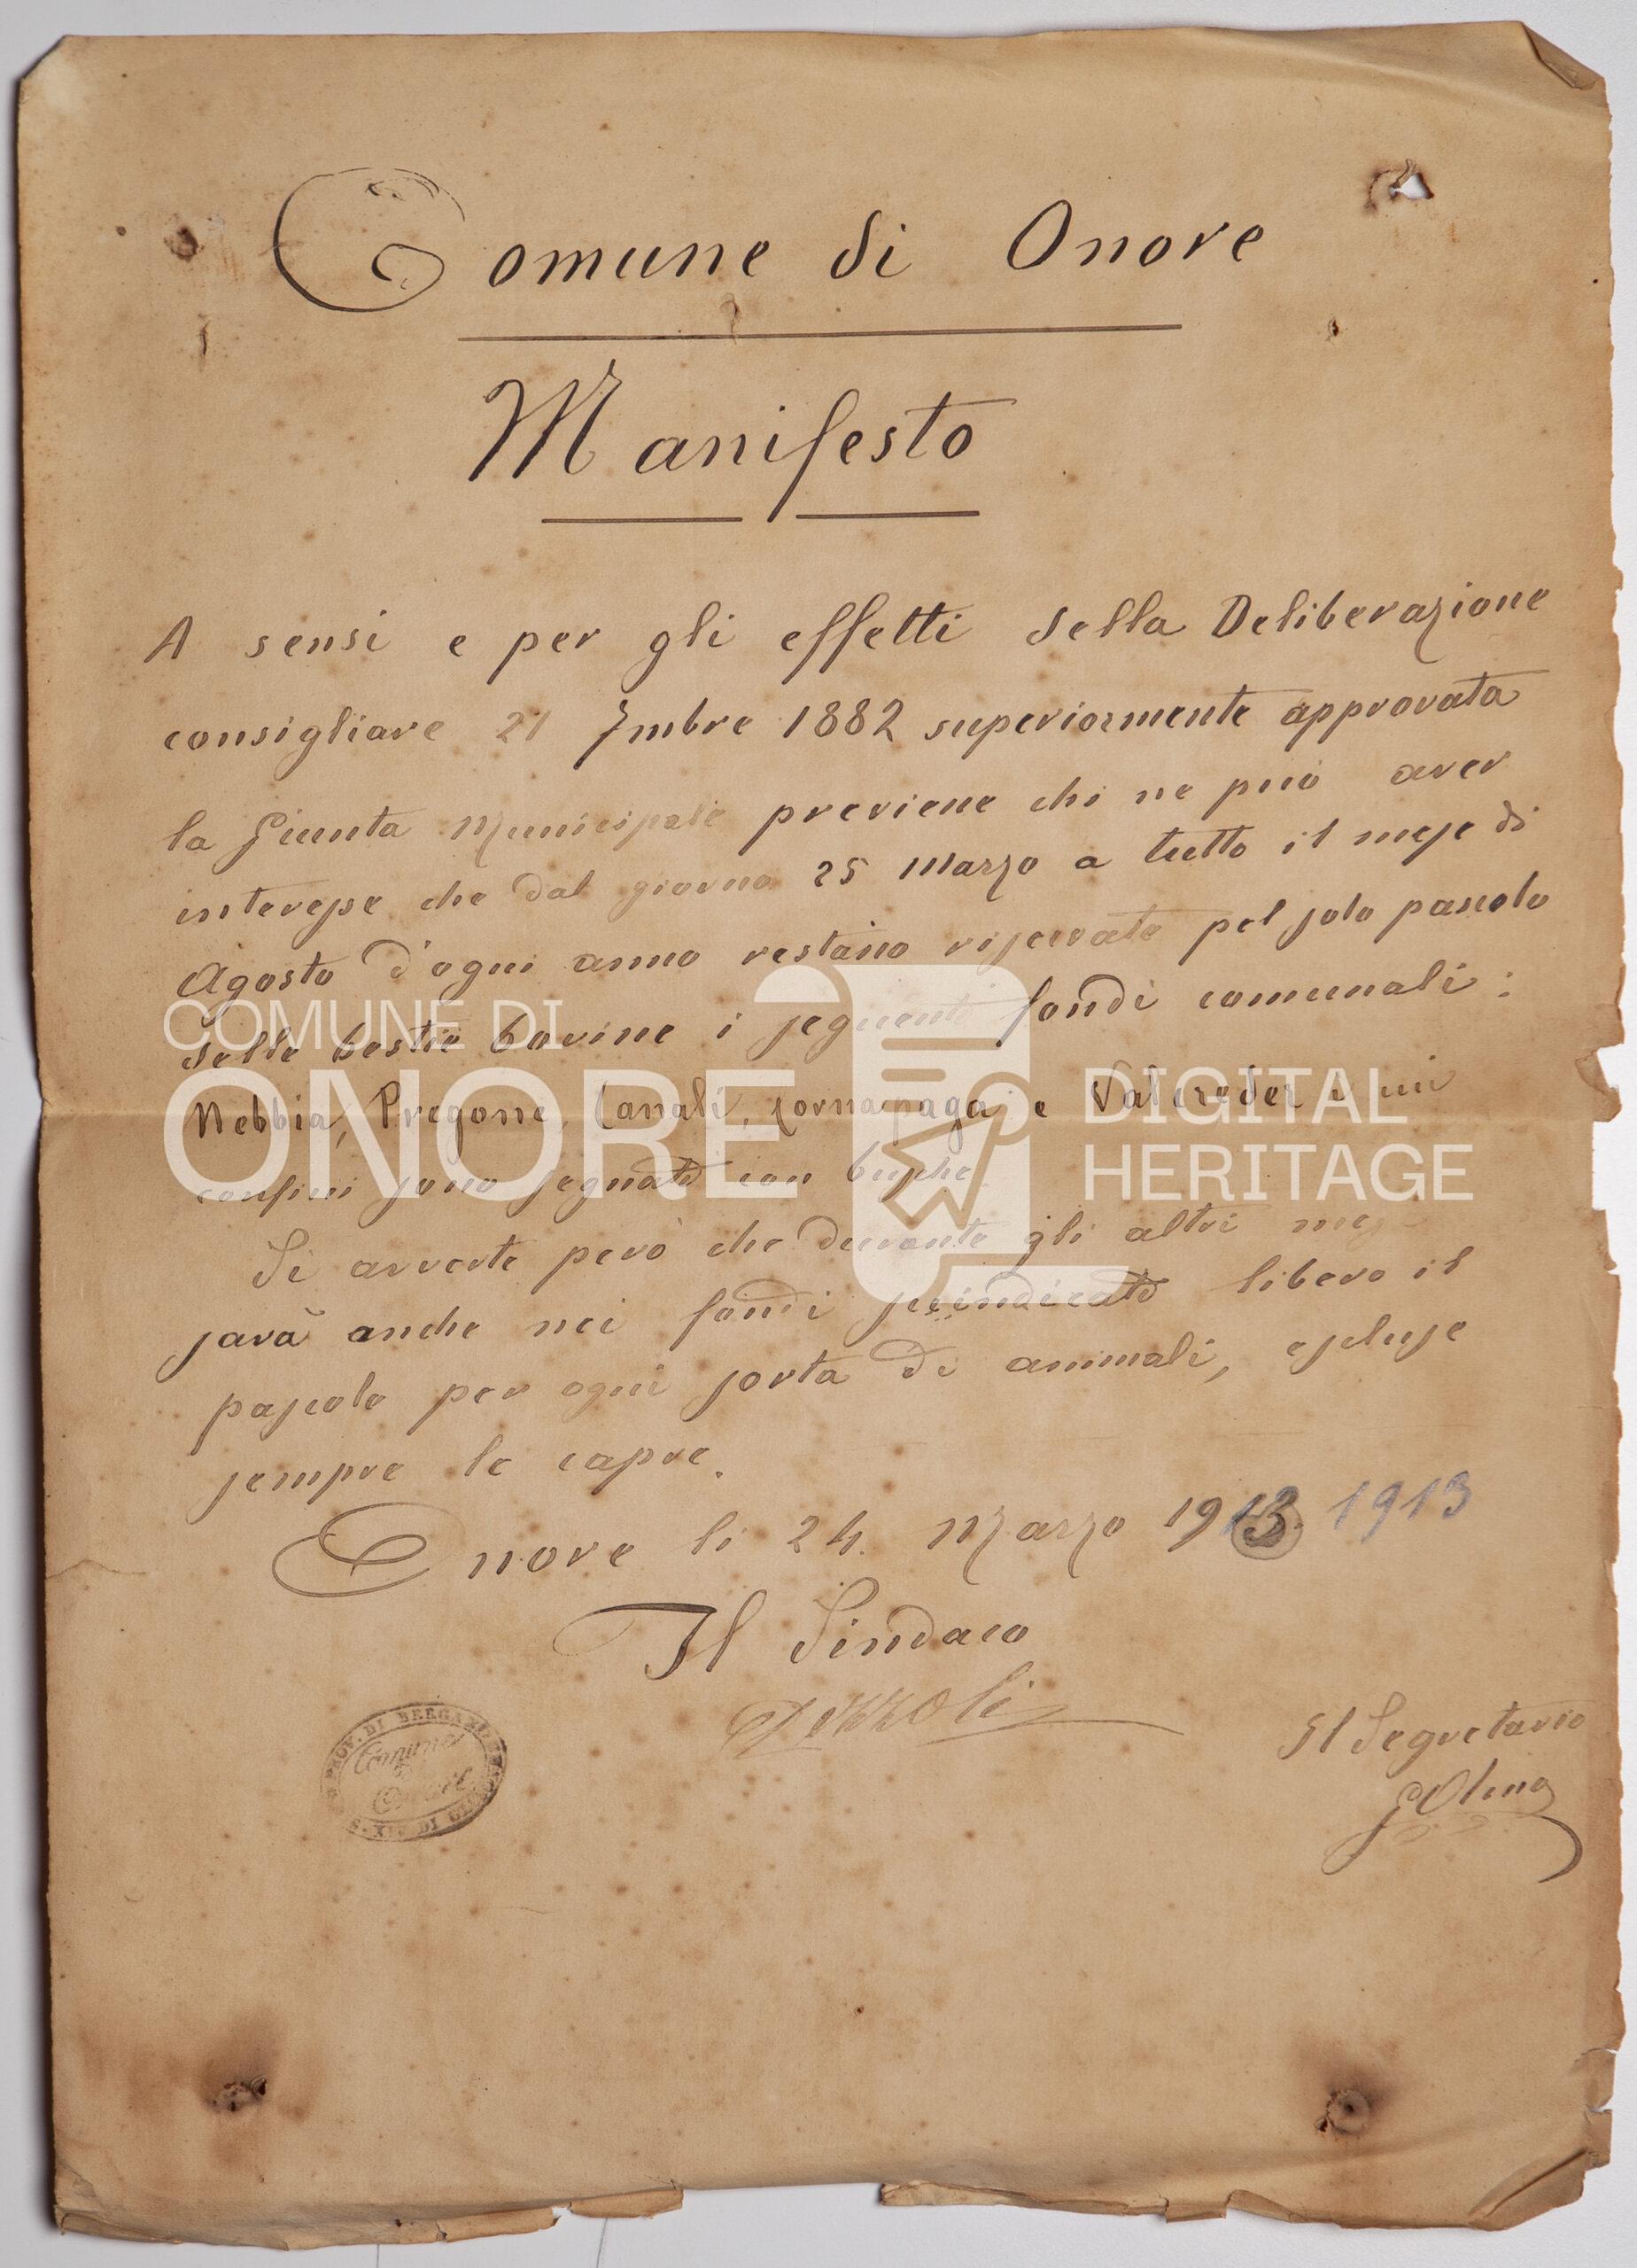 Comune di Onore
Manifesto
A sensi e per gli effetti della Deliberazione
consigliare 21 7mbre 1882 superiormente approvata
la Giunta Municipale previene chi ne può aver
interesse che dal giorno 25 Marzo a tutto il mese di
Agosto d'ogni anno restano riservate pel solo pascolo
delle bestie bovine i seguenti fondi comunali:
Nebbia, Pregone, Canali, e Valcreder i cui
confini sono segnati con
Si avverte però che durante gli altri
sarà anche nei fondi libero il
pascolo per ogni sorta di animali, escluse
sempre le capre.
Onore li 24 Marzo 1913. 1913
Il Sindaco
Il Segretario
PROV. DI BERGAMO
Comune
Onore
COMUNE DI
ONORE
DIGITAL
HERITAGE